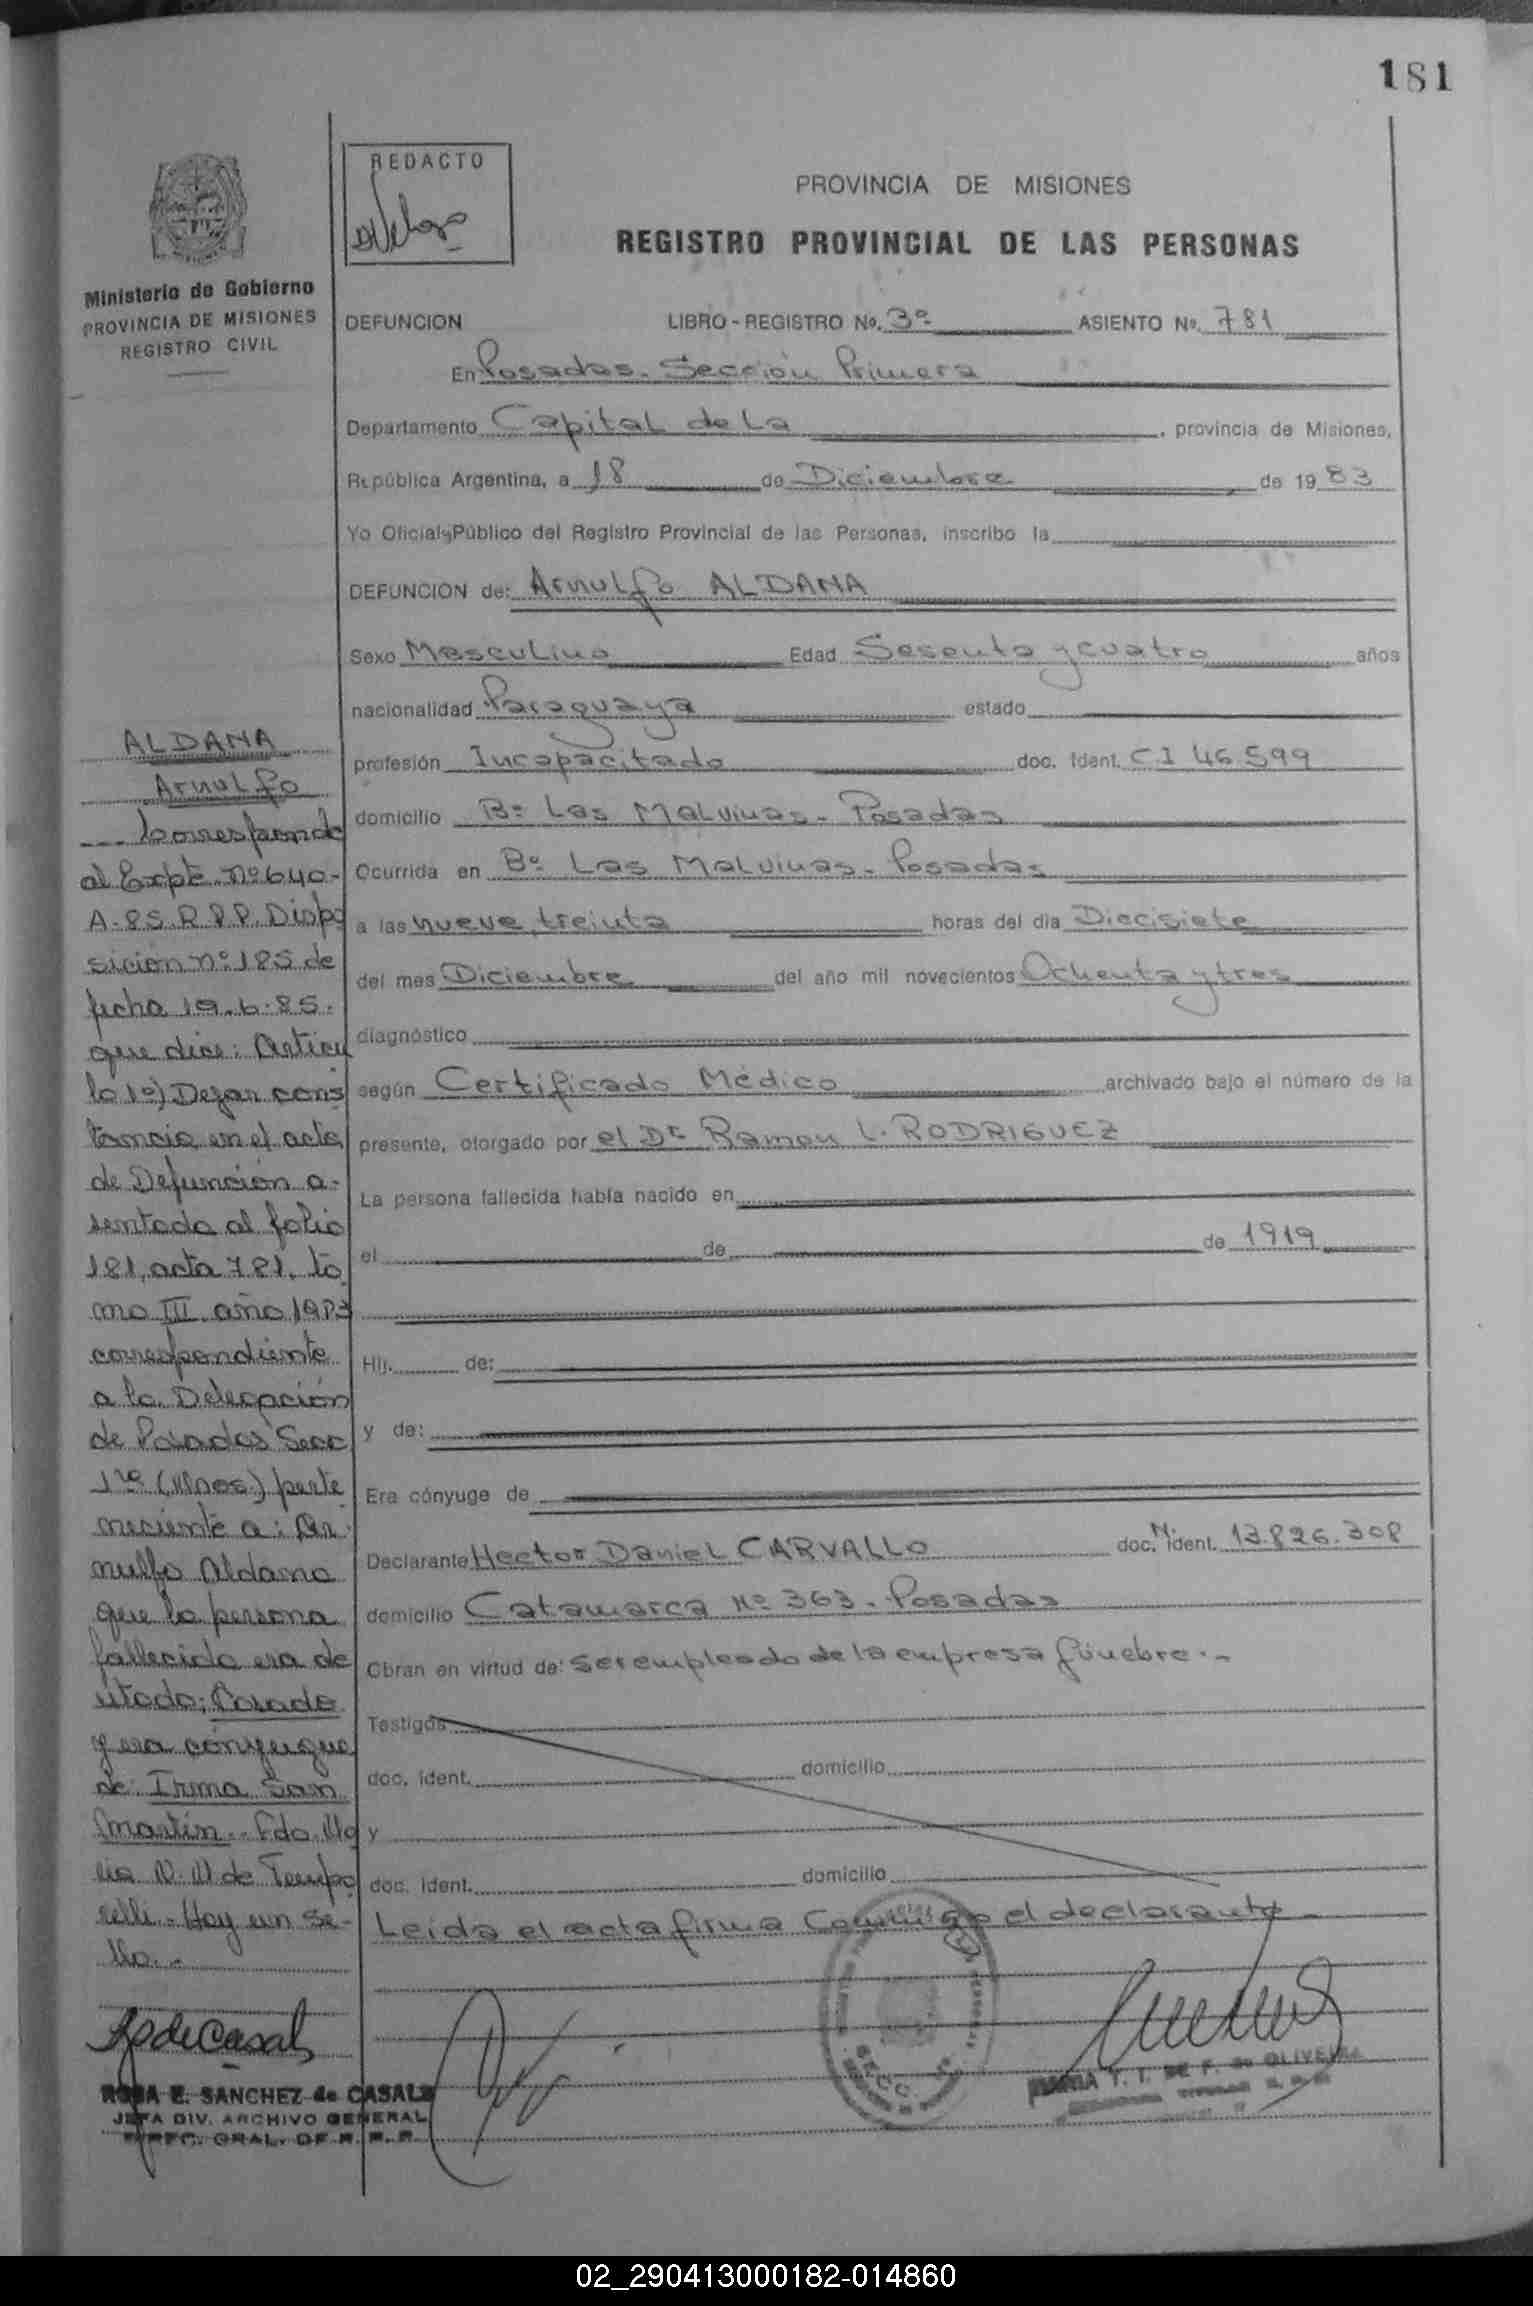 181
REDACTO
Ministerio de Gobierno
PROVINCIA DE MISIONES
REGISTRO CIVIL
PROVINCIA DE MISIONES
REGISTRO PROVINCIAL DE LAS PERSONAS
DEFUNCION LIBRO - REGISTRO No. 3º ASIENTO No. 781
En Posadas. Sección Primera
Departamento Capital de La , provincia de Misiones,
República Argentina, a 18 de Diciembre de 1983
Yo Oficial Público del Registro Provincial de las Personas, inscribo la
DEFUNCION de: Arnulfo ALDANA
Sexo Masculino Edad Sesenta y cuatro años
nacionalidad Paraguaya estado
profesión Incapacitado doc. Ident. C.I 46.599
domicilio Bº Las Malvinas - Posadas
Ocurrida en Bº Las Malvinas - Posadas
a las nueve, treinta horas del día Diecisiete
del mes Diciembre del año mil novecientos Ochenta y tres
diagnóstico
según Certificado Médico archivado bajo el número de la
presente, otorgado por el Dr Ramon L. RODRIGUEZ
La persona fallecida había nacido en
el de de 1919
Hij. de:
y de:
Era cónyuge de
Declarante Hector Daniel CARVALLO doc. N. ident. 13.826.308
domicilio Catamarca Nº 363 - Posadas
Obran en virtud de: ser empleado de la empresa fúnebre.-
Testigos
doc. ident. domicilio
y
doc. ident. domicilio
Leida el acta firma Conmigo el declarante-
ALDANA
Arnulfo
--- Corresponde
al Expte nº 640-
A-85.R.P.P. Dispo
sición nº 185 de
fecha 19.6.85.
que dice: Artícu
lo 1º) Dejar cons
tancia en el acta
de Defunción a-
sentada al folio
181, acta 781, to
mo III año 1983
correspondiente
a la Delegación
de Posadas Secc
1ra (Mnes) perte
neciente a: Ar-
nulfo Aldana
que la persona
fallecida era de
estado: Casado
y era cónyugue
de: Irma San
Martín.- Fdo. Ma
ria N. M de Tempo
relli - Hay un se-
llo.-
ROSA E. SANCHEZ de CASALS
JEFA DIV. ARCHIVO GENERAL
DIREC. GRAL. DE R. P. P.
SECC.
MARIA T. T. DE F. de OLIVEIRA
02_290413000182-014860